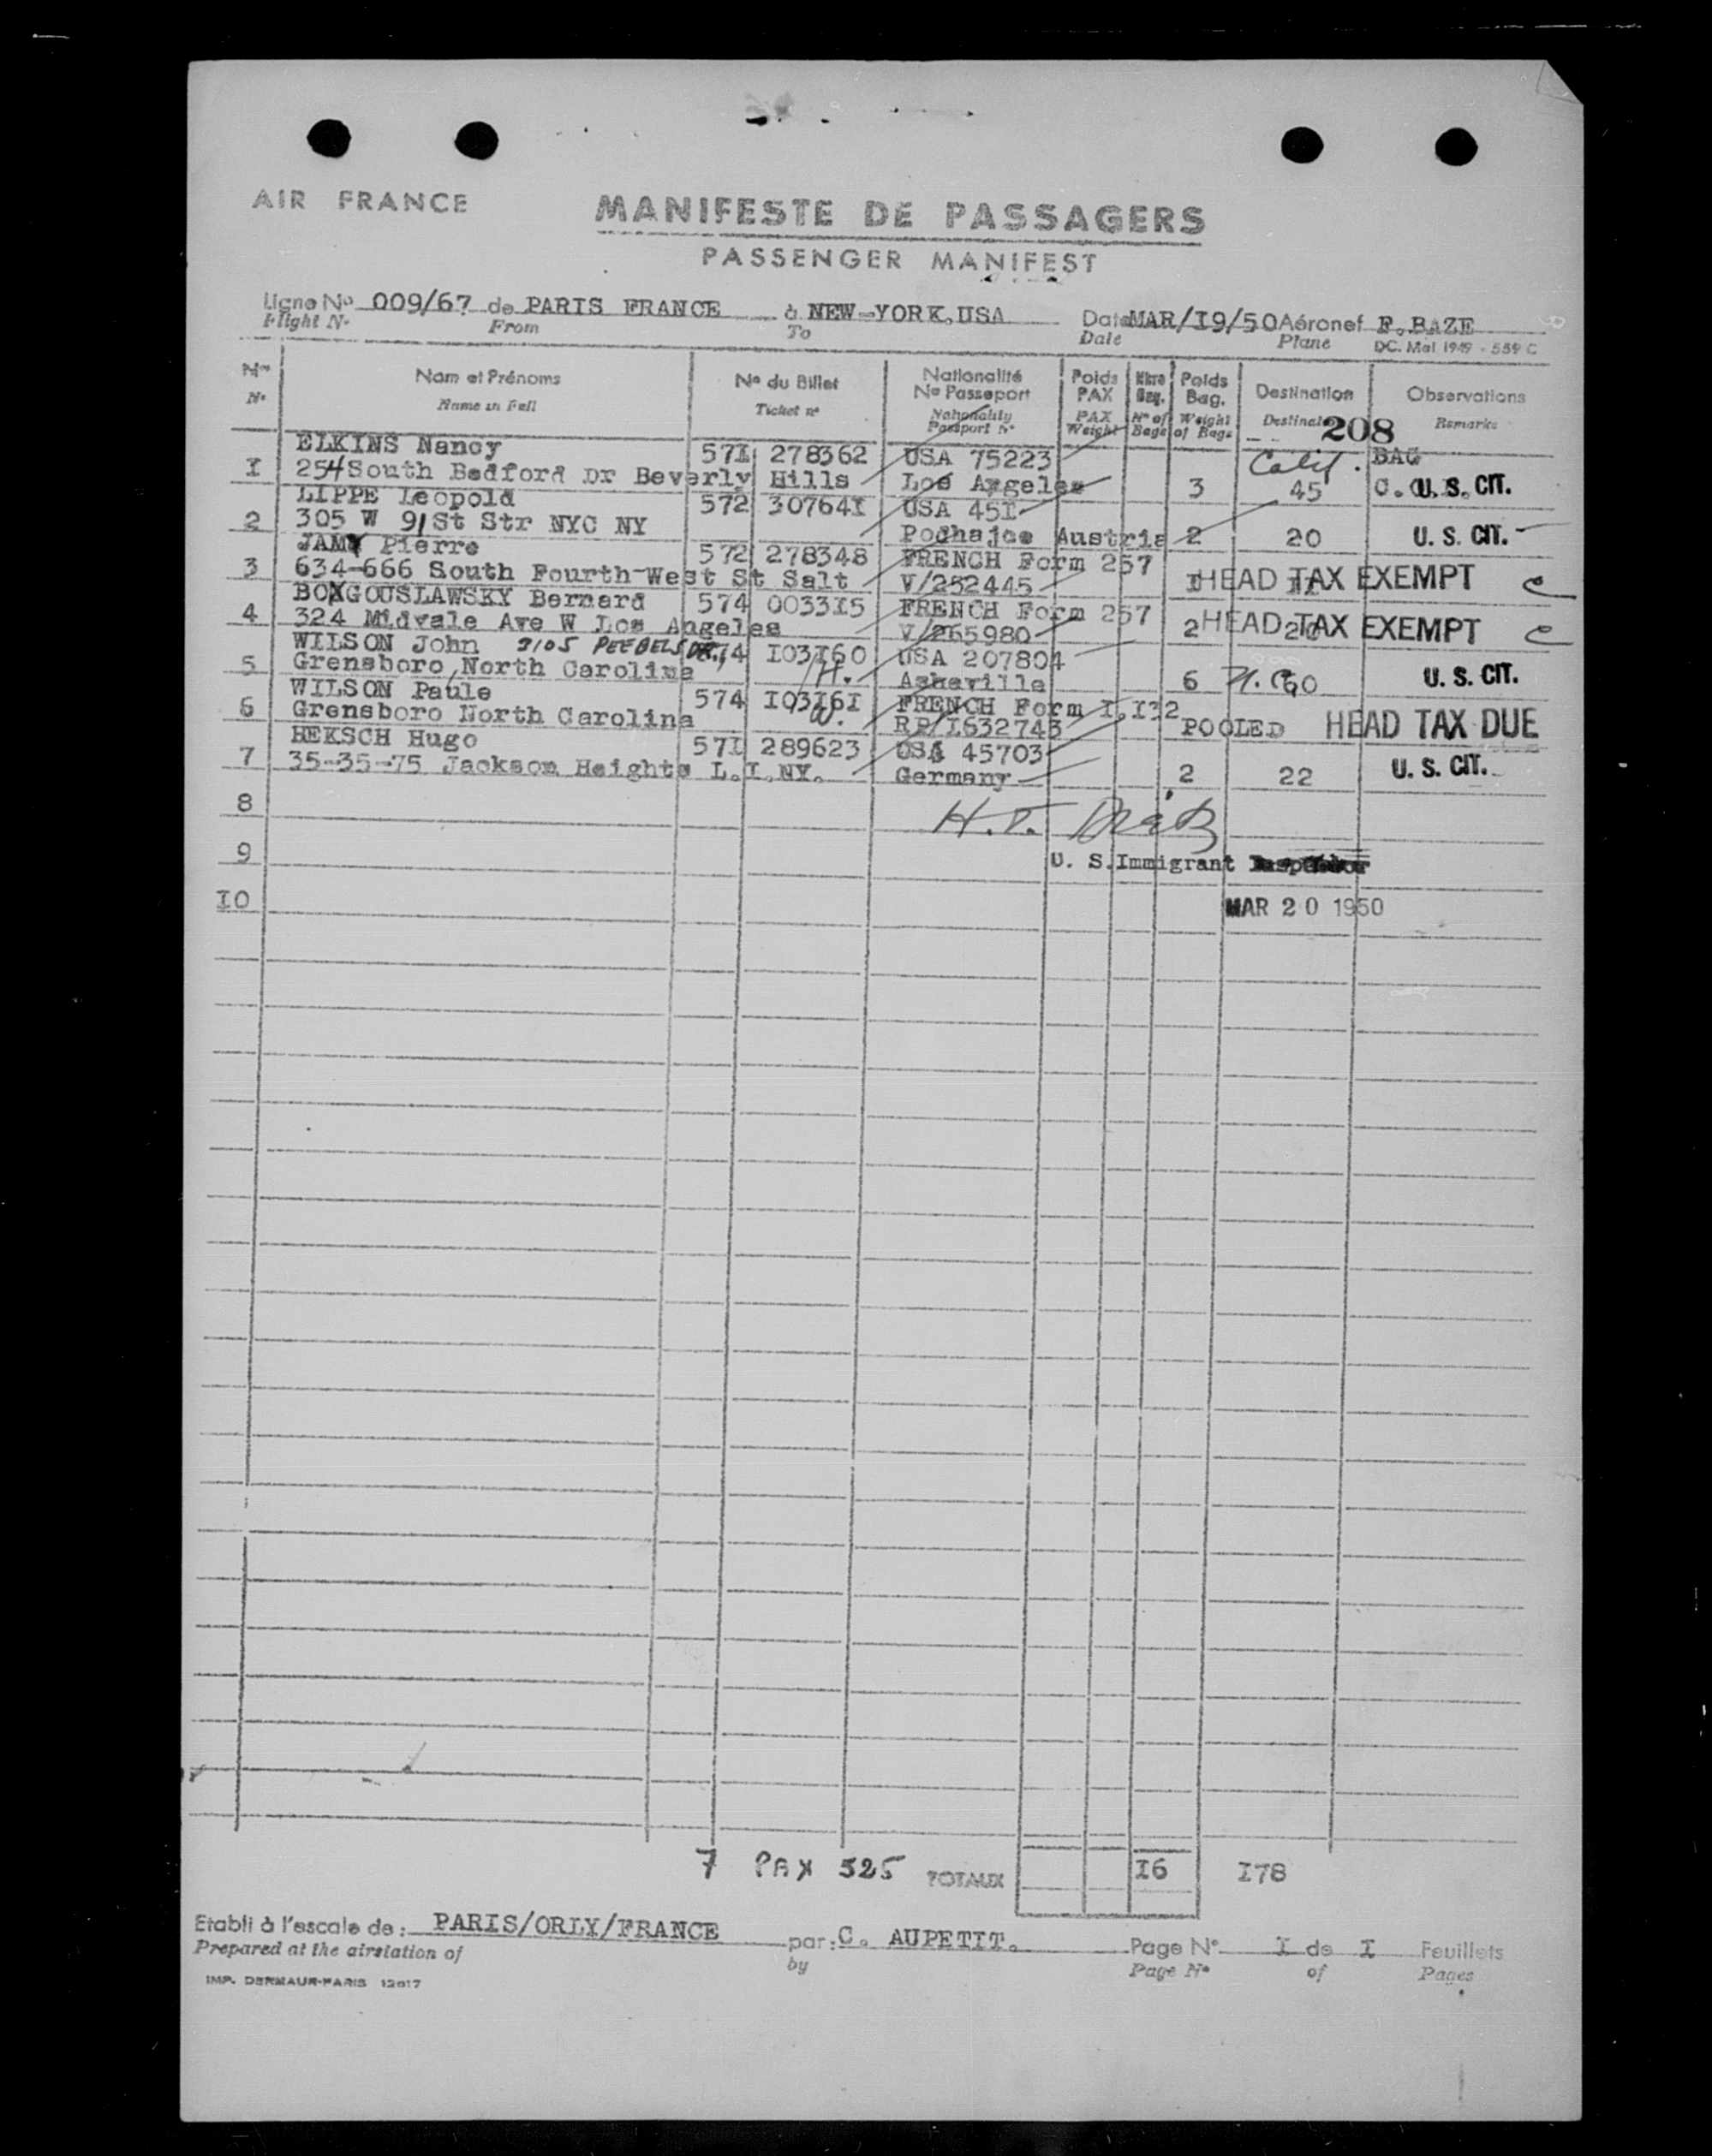 AIR FRANCE
MANIFESTE DE PASSAGERS
PASSENGER MANIFEST
Ligne No 009/67 de PARIS FRANCE à NEW-YORK,USA Date MAR/I9/50 Aéronef F.BAZE
Flight N· From To Date Plane DC. Mai 1949 - 559 C
Nos Nom et Prénoms No du Billet Nationalité No Passeport Poids PAX Nbre Bag. Poids Bag. Destination Observations
N· Name in Full Ticket no Nationality Passport No PAX Weight No of Bags Weight of Bags 208 Remarks
ELKINS Nancy 57I 278362 USA 75223 Calif. BAG
I 254 South Bedford Dr Beverly Hills Los Angeles 3 45 U. S. CIT.
LIPPE Leopold 572 30764I USA 45I
2 305 W 91St Str NYC NY Podhajce Austria 2 20 U. S. CIT.
Pierre 572 278348 FRENCH Form 257
3 634-666 South Fourth West St Salt V/252445 HEAD TAX EXEMPT C
Bernard 574 0033I5 FRENCH Form 257
4 324 Midvale Ave W Los Angeles V/265980 2 HEAD TAX EXEMPT C
WILSON John 3105 PEEBELS DR., 574 I03I60 USA 207804
5 Grensboro,North Carolina H. Asheville 6 60 U. S. CIT.
WILSON Paule 574 I03I6I FRENCH Form I.I32
6 Grensboro North Carolina W. RP/I632743 POOLED HEAD TAX DUE
HEKSCH Hugo 57I 289623 USA 45703
7 35-35-75 Jackson Heights L.I.NY. Germany 2 22 U. S. CIT.
8 H.T.
9 U. S. Immigrant Inspector
IO MAR 20 1950
7 PAX 525 TOTAUX I6 I78
Etabli à l'escale de: PARIS/ORLY/FRANCE par: C. AUPETIT. Page No I de I Feuillets
Prepared at the airstation of by Page No of Pages
IMP. DERMAUR-PARIS 12017